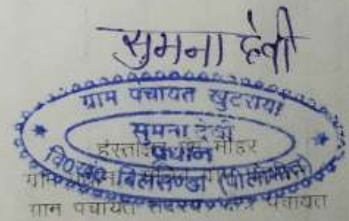 सुमना देवी
ग्राम पंचायत खुटराया
सुमना देवी
प्रधान
हस्ताक्षर मोहर
वि०खं० बिलसण्डा (पीलीभीत)
ग्राम पंचायत सदस्य पंचायत